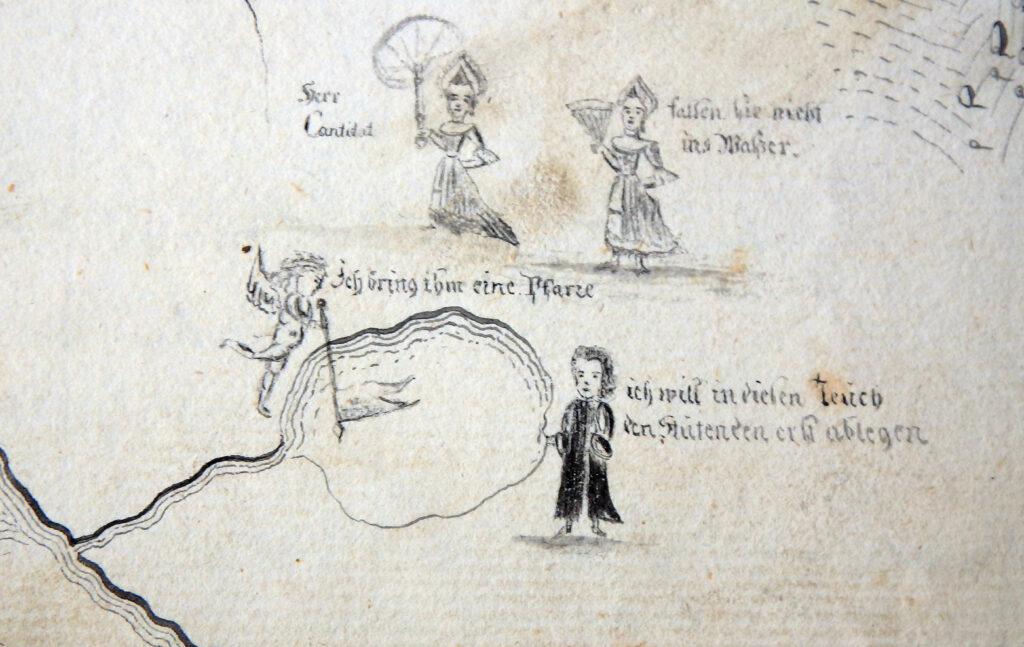 Herr
Cantidat
fallen sie nicht
ins Waßer.
ich bring ihm eine Pfarre
ich will in diesen Teüch
den Stutenden erst ablegen